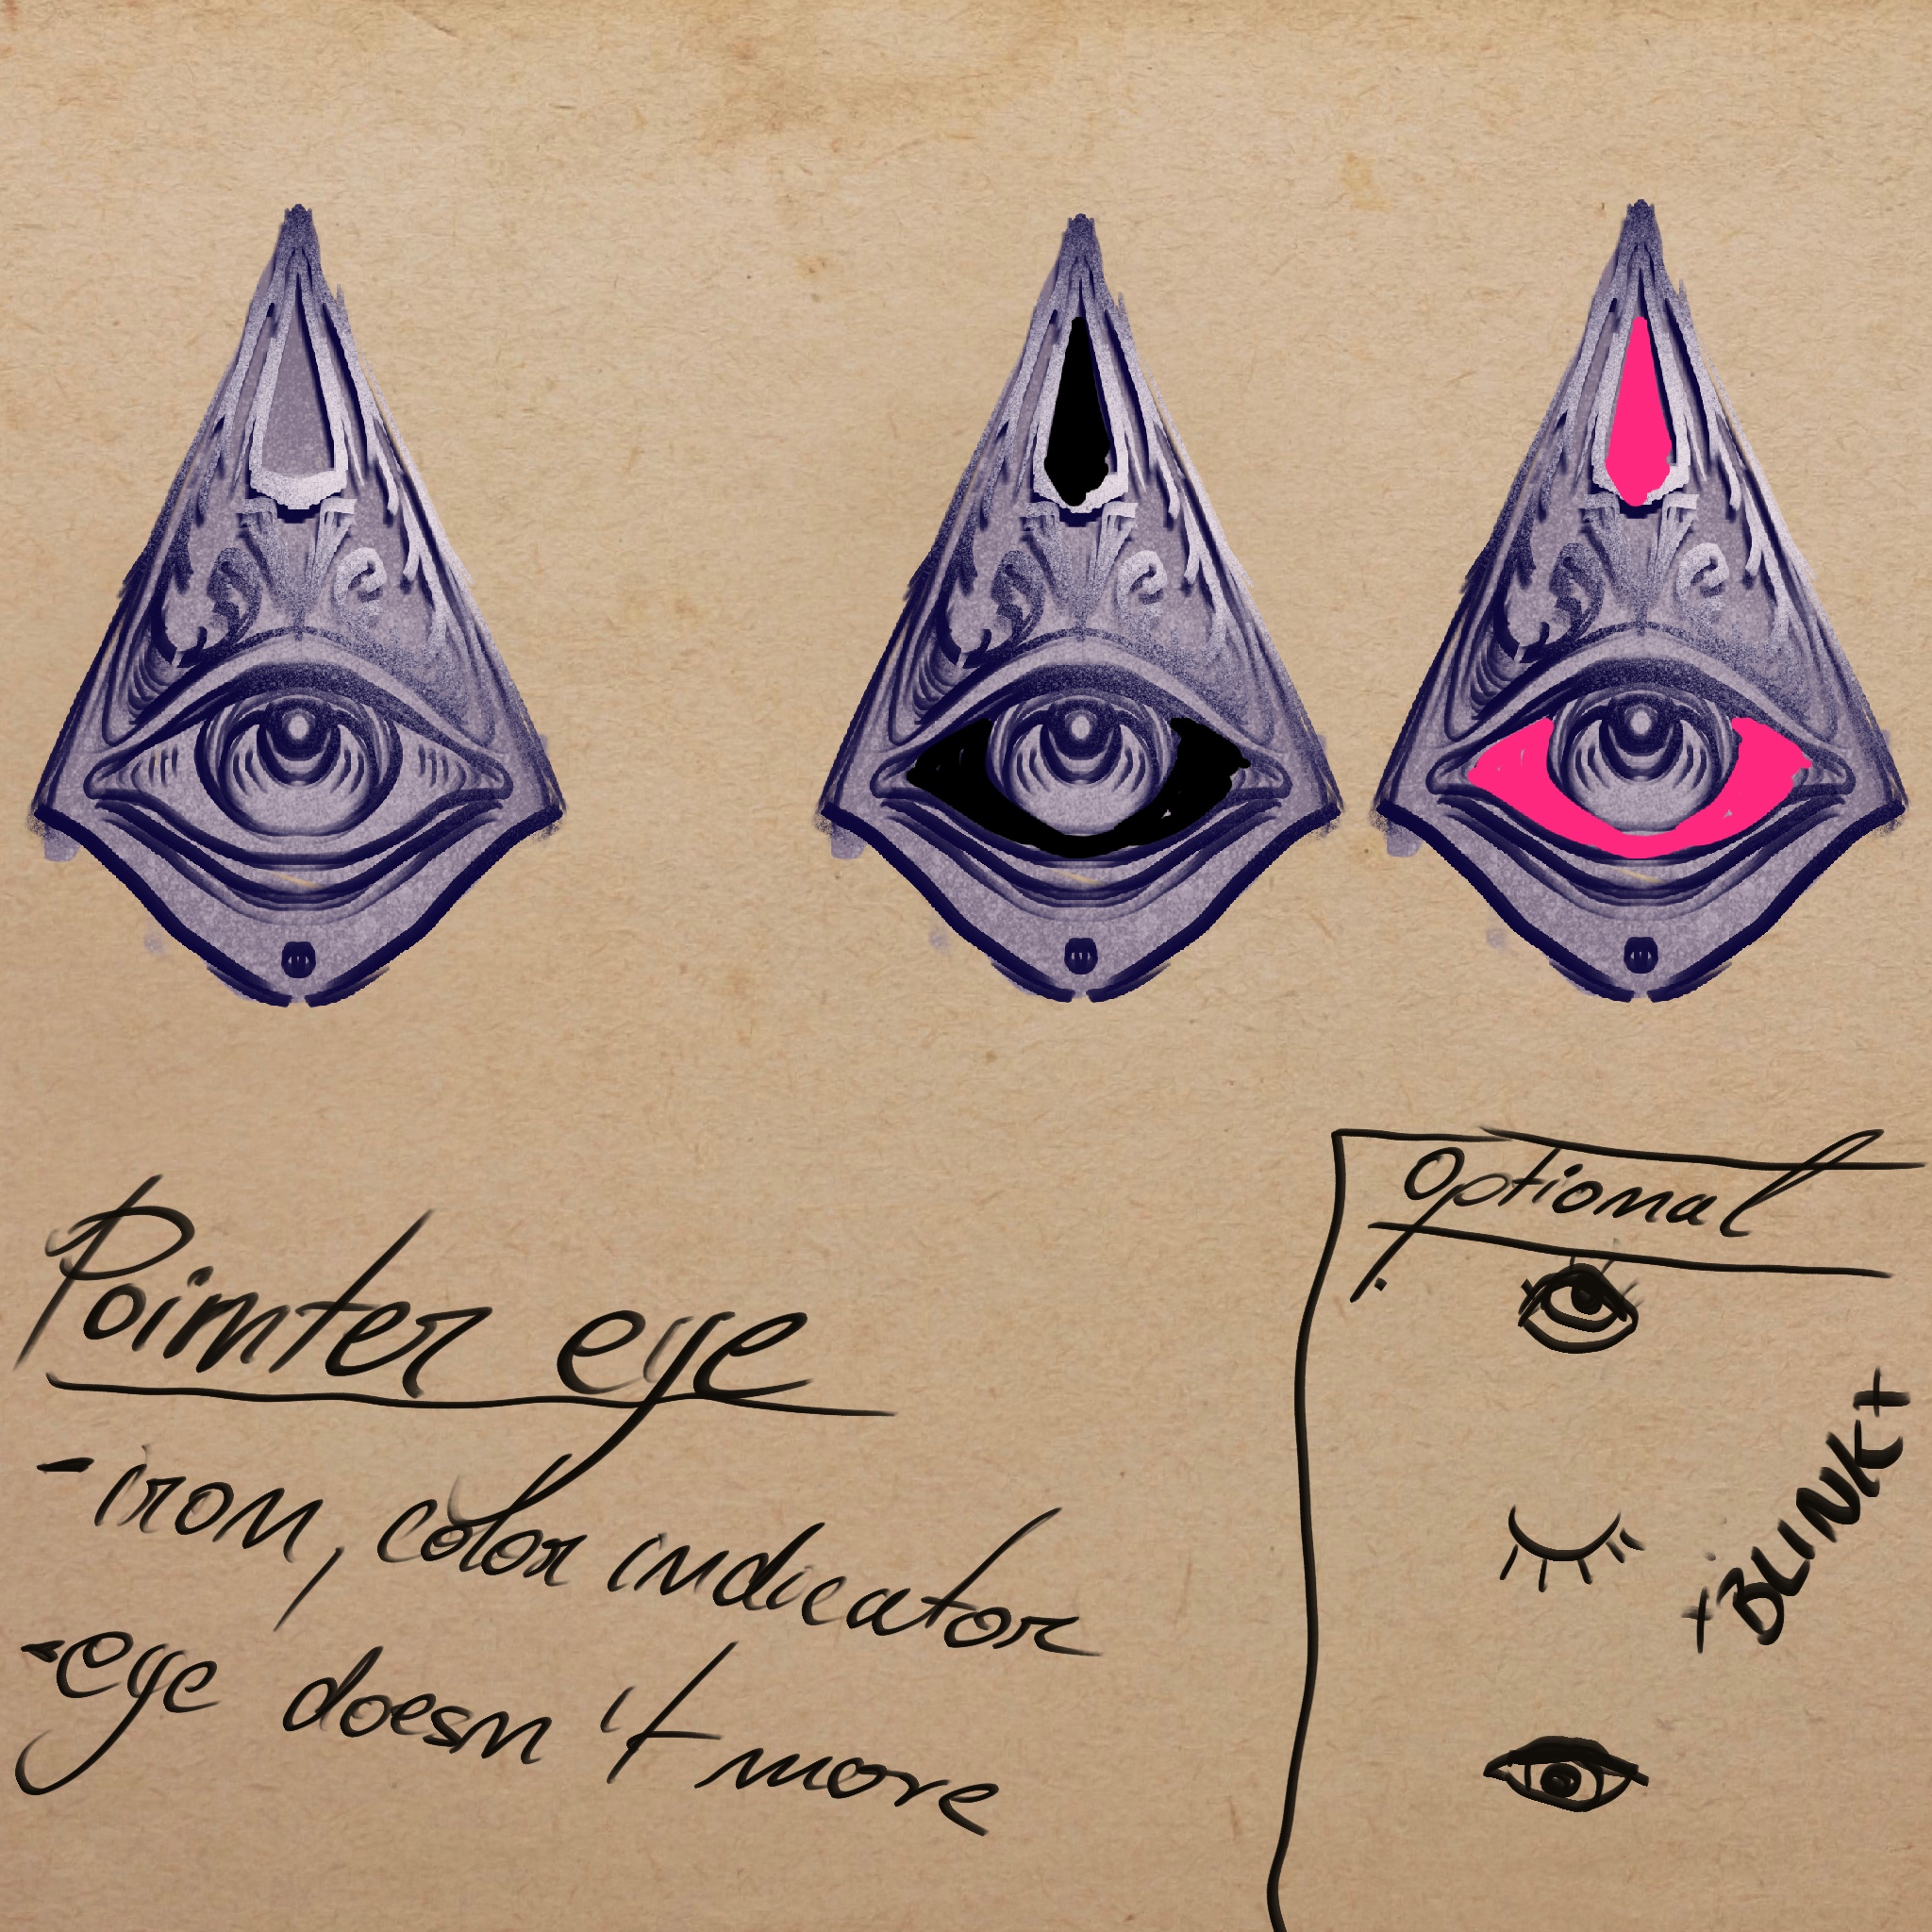 Pointer eye
- iron, color indicator
- eye doesn't move
Optional
+BLINK+